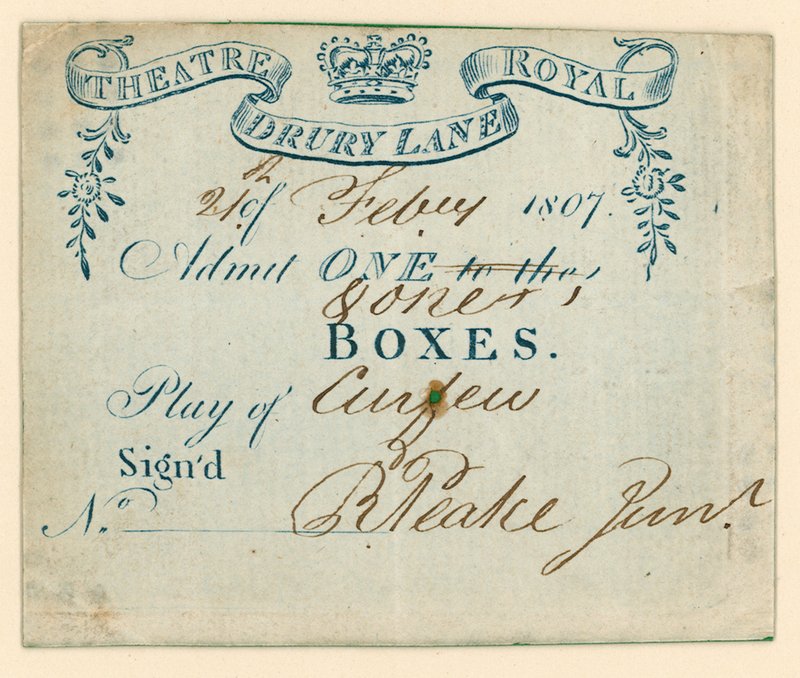 THEATRE ROYAL
DRURY LANE
21st of Feb'y 1807.
Admit ONE to the
& one
BOXES.
Play of Curfew
Sign'd
R Peake Junr.
No.